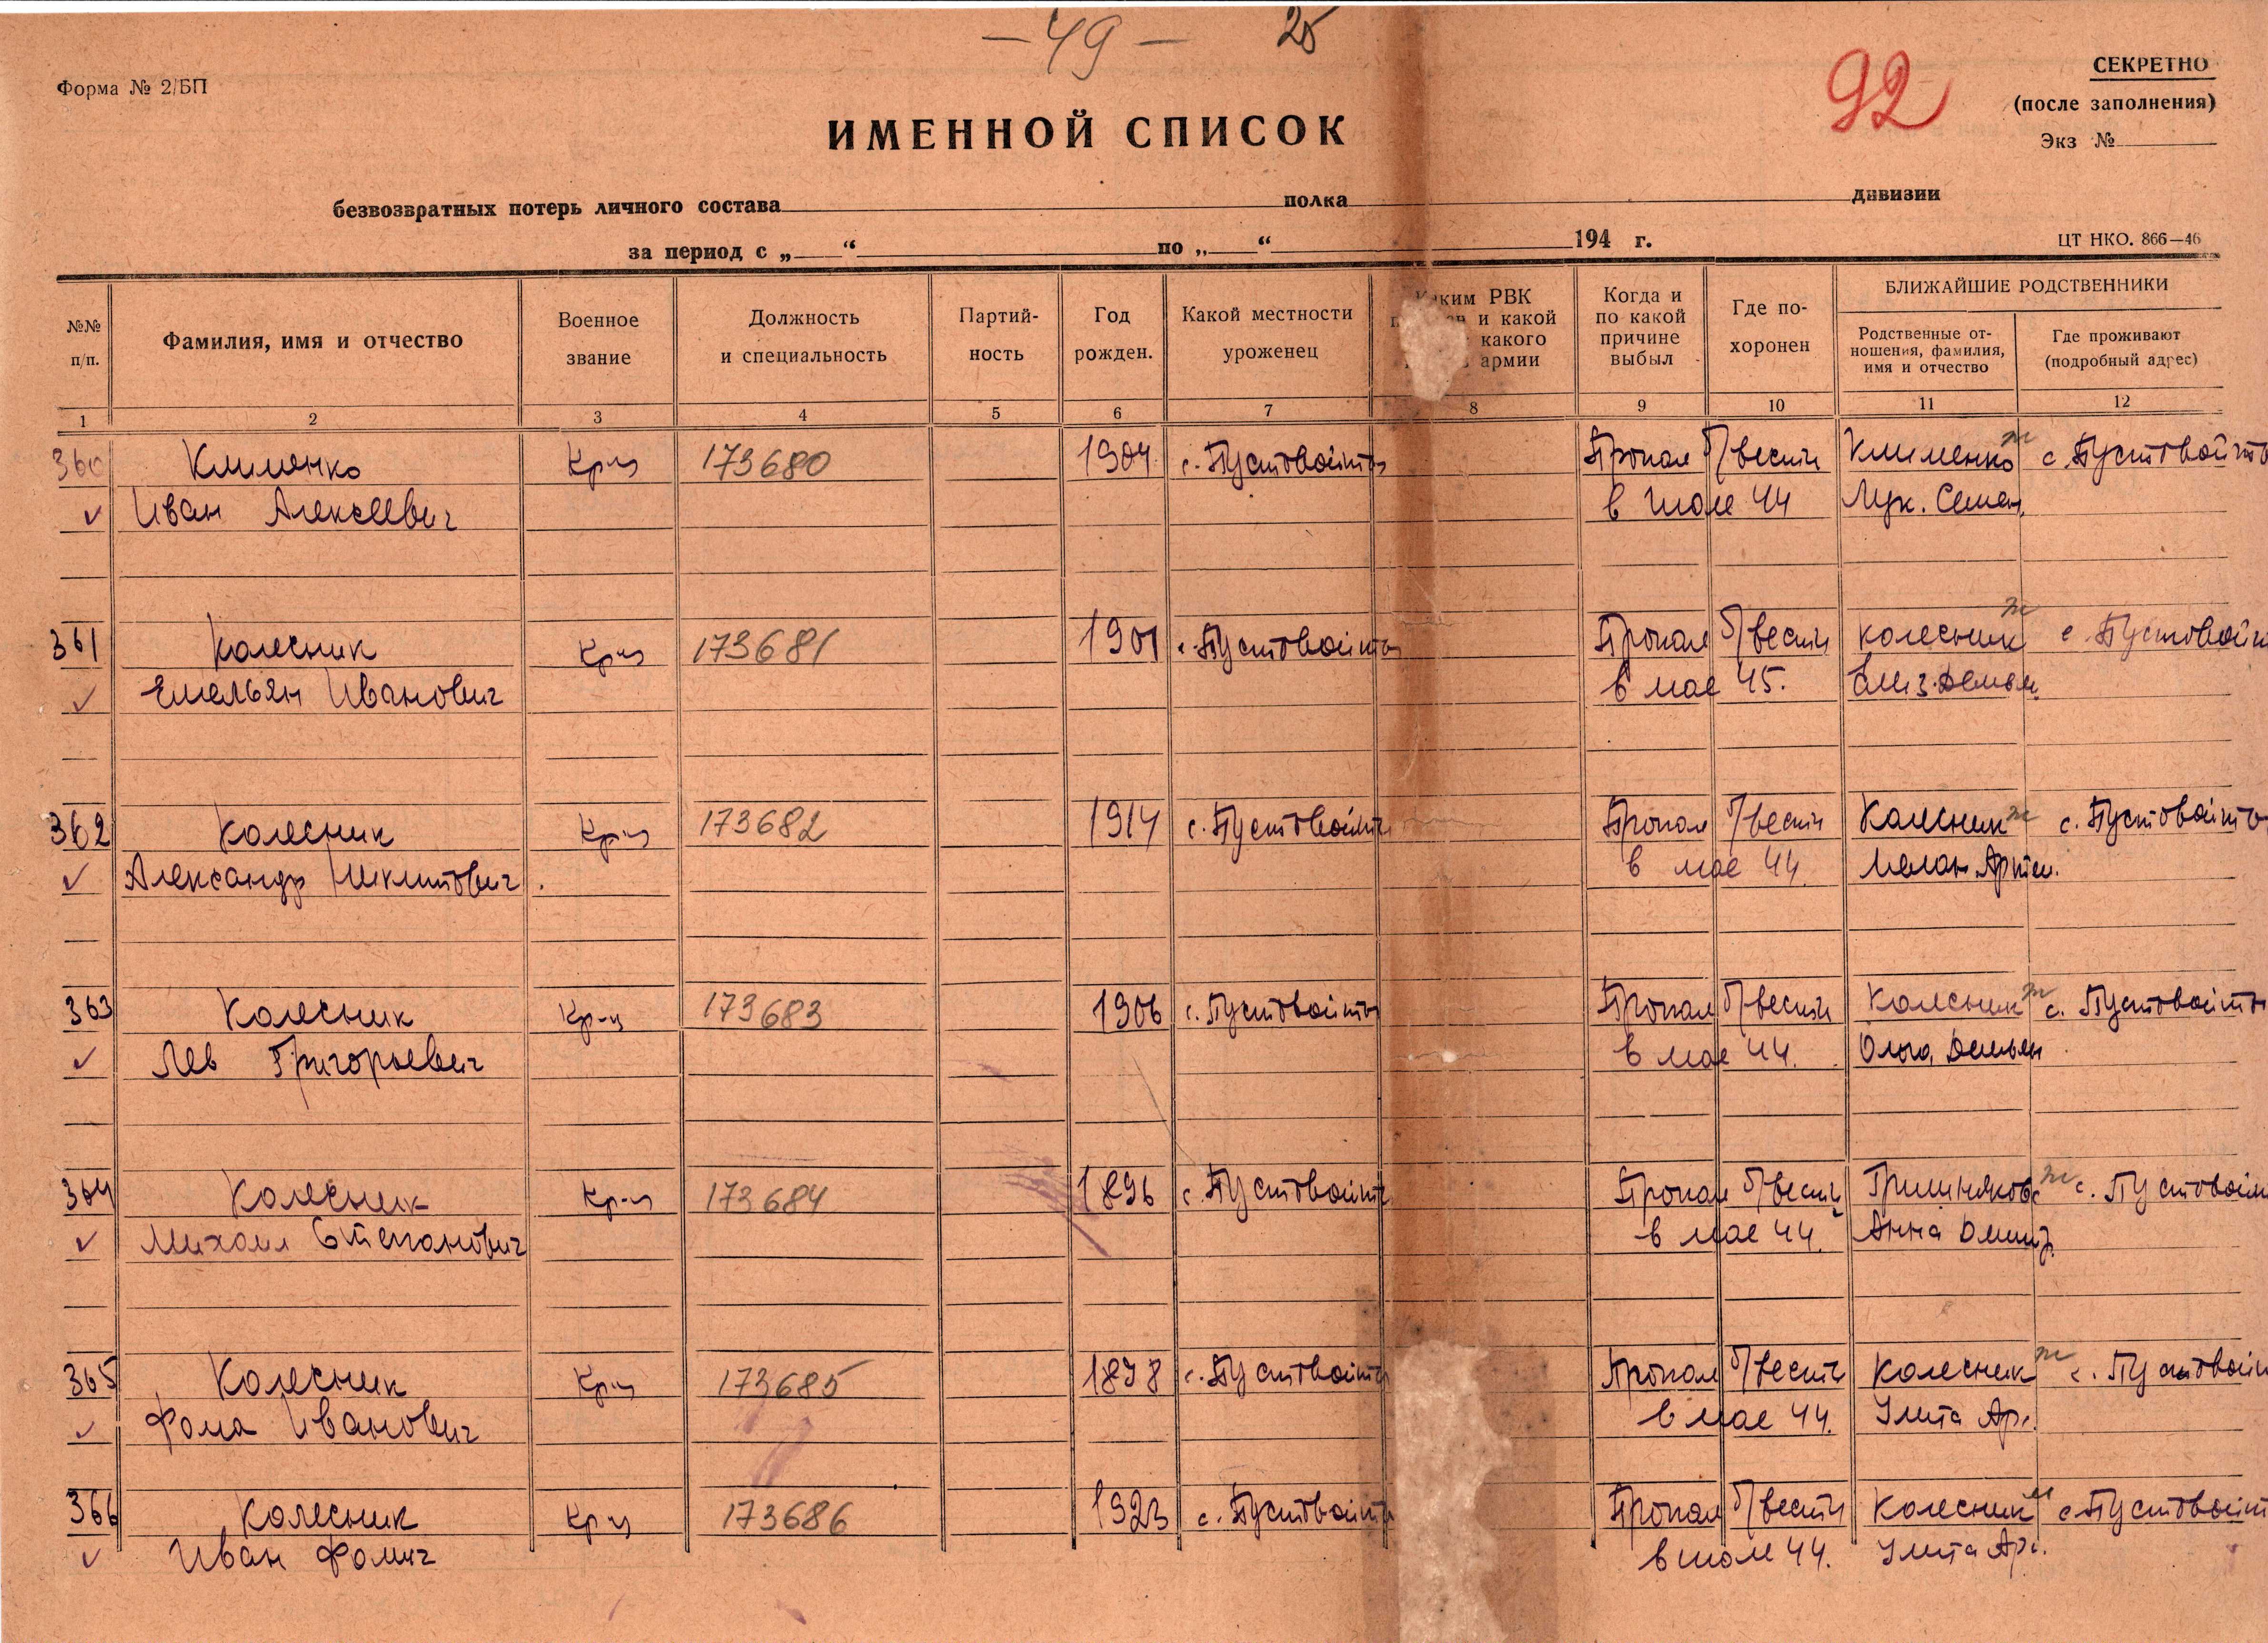 — 49 — 25
92
Форма № 2/БП
СЕКРЕТНО
(после заполнения)
Экз №
ИМЕННОЙ СПИСОК
безвозвратных потерь личного состава полка дивизии
за период с „ “ по „ “ 194 г.
ЦТ НКО. 866—46
№№ п/п.
Фамилия, имя и отчество
Военное звание
Должность и специальность
Партий-ность
Год рожден.
Какой местности уроженец
РВК
и какой
какого
армии
Когда и по какой причине выбыл
Где по-хоронен
БЛИЖАЙШИЕ РОДСТВЕННИКИ
Родственные от-ношения, фамилия, имя и отчество
Где проживают (подробный адрес)
1 2 3 4 5 6 7 8 9 10 11 12
360 Клименко Кр-ц 173680 1904 с. Пустовойты Пропал б/вести Клименко ж с. Пустовойты
Иван Алексеевич в июле 44 Лук. Семен.
361 Колесник Кр-ц 173681 1901 с. Пустовойты Пропал б/вести Колесник ж с. Пустовойт
Емельян Иванович в мае 45. Елиз. Демьян.
362 Колесник Кр-ц 173682 1914 с. Пустовойты Пропал б/вести Колесник ж с. Пустовойты
Александр Никитович в мае 44. Мелан. Артем.
363 Колесник Кр-ц 173683 1906 с. Пустовойты Пропал б/вести Колесник ж с. Пустовойты
Лев Григорьевич в мае 44. Ольга Демьян
364 Колесник Кр-ц 173684 1896 с. Пустовойты Пропал б/вести ж с. Пустовойт
Михаил Степанович в мае 44. Анна Дмитр.
365 Колесник Кр-ц 173685 1898 с. Пустовойты Пропал б/вести Колесник ж с. Пустовойт
Фома Иванович в мае 44. Улита Ар.
366 Колесник Кр-ц 173686 1923 с. Пустовойты Пропал б/вести Колесник м с. Пустовойт
Иван Фомич в июле 44. Улита Ар.